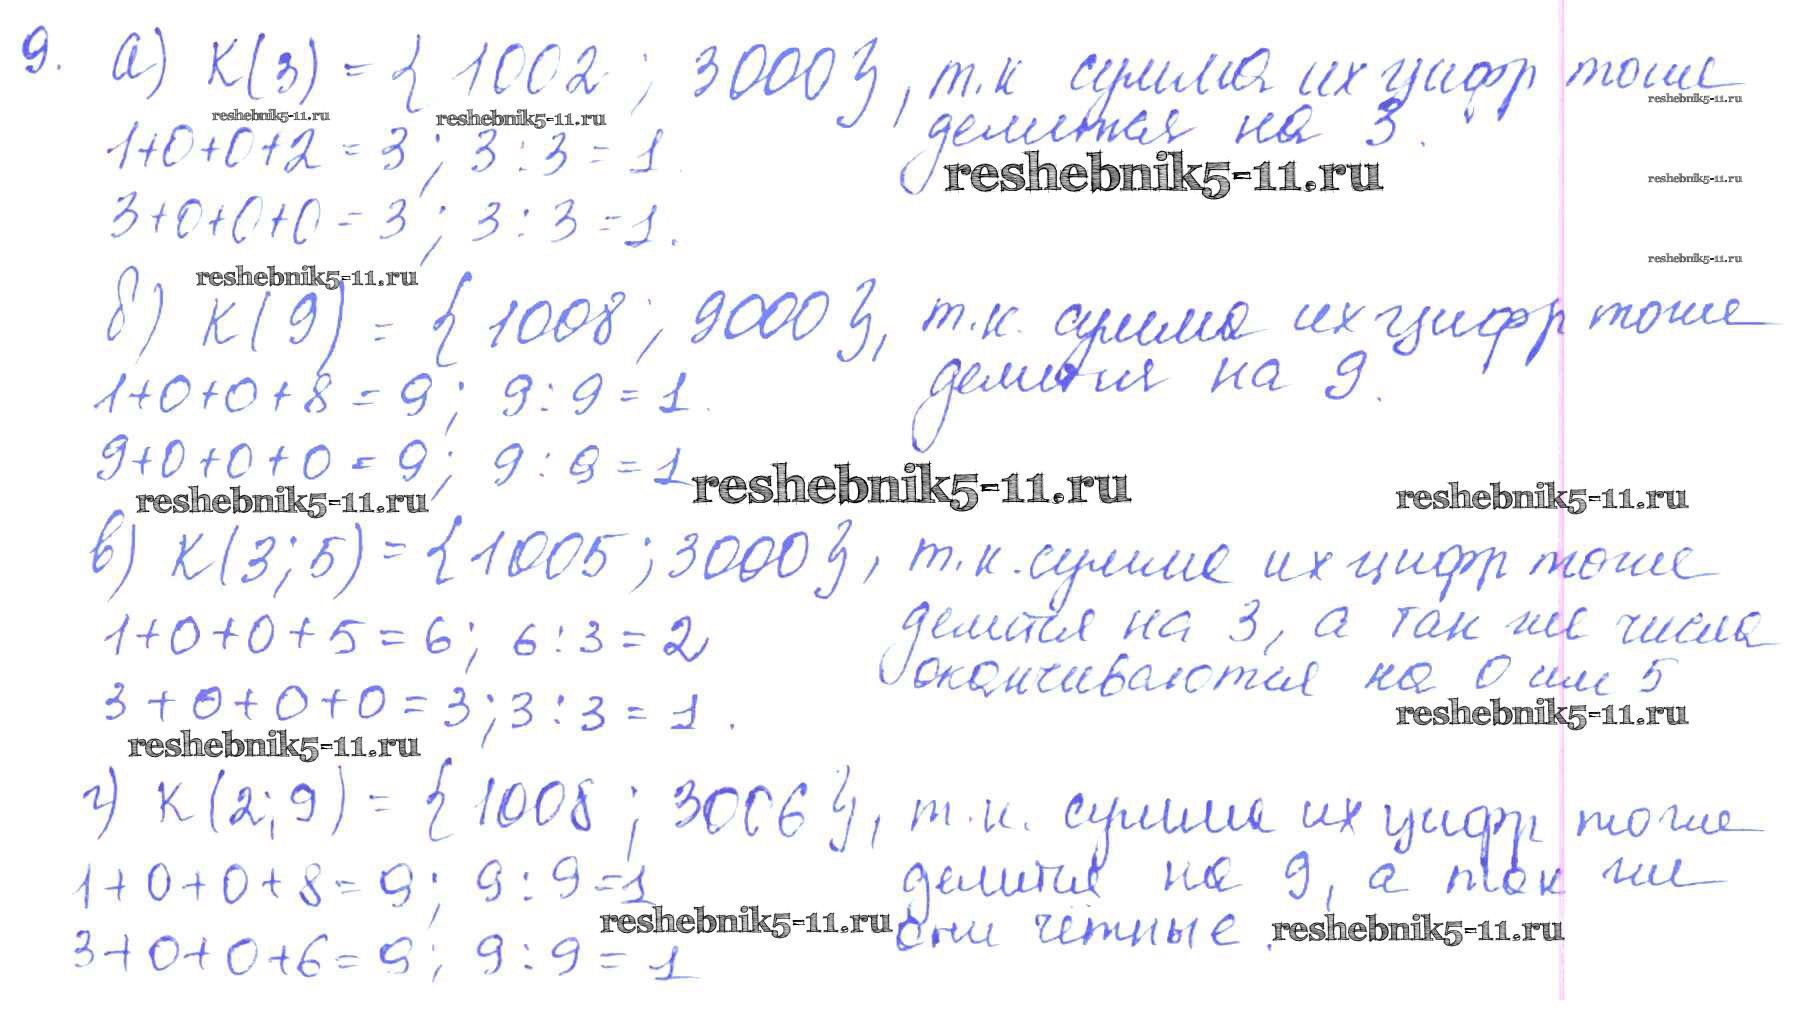 9. а) К(3) = { 1002 ; 3000 }, т.к сумма их цифр тоже
reshebnik5-11.ru reshebnik5-11.ru reshebnik5-11.ru
1+0+0+2 = 3 ; 3 : 3 = 1. делится на 3.
reshebnik5-11.ru reshebnik5-11.ru
3+0+0+0 = 3 ; 3 : 3 = 1.
reshebnik5-11.ru reshebnik5-11.ru
б) К(9) = { 1008 ; 9000 }, т.к. сумма их цифр тоже
1+0+0+8 = 9 ; 9 : 9 = 1. делится на 9.
9+0+0+0 = 9 ; 9 : 9 = 1
reshebnik5-11.ru reshebnik5-11.ru reshebnik5-11.ru
в) К(3; 5) = { 1005 ; 3000 }, т.к. сумма их цифр тоже
1+0+0+5 = 6 ; 6 : 3 = 2 делится на 3, а так же числа
3+0+0+0 = 3 ; 3 : 3 = 1. оканчиваются на 0 или 5
reshebnik5-11.ru reshebnik5-11.ru
г) К(2; 9) = { 1008 ; 3006 }, т.к. сумма их цифр тоже
1+0+0+8 = 9 ; 9 : 9 = 1 делится на 9, а так же
reshebnik5-11.ru они чётные. reshebnik5-11.ru
3+0+0+6 = 9 ; 9 : 9 = 1